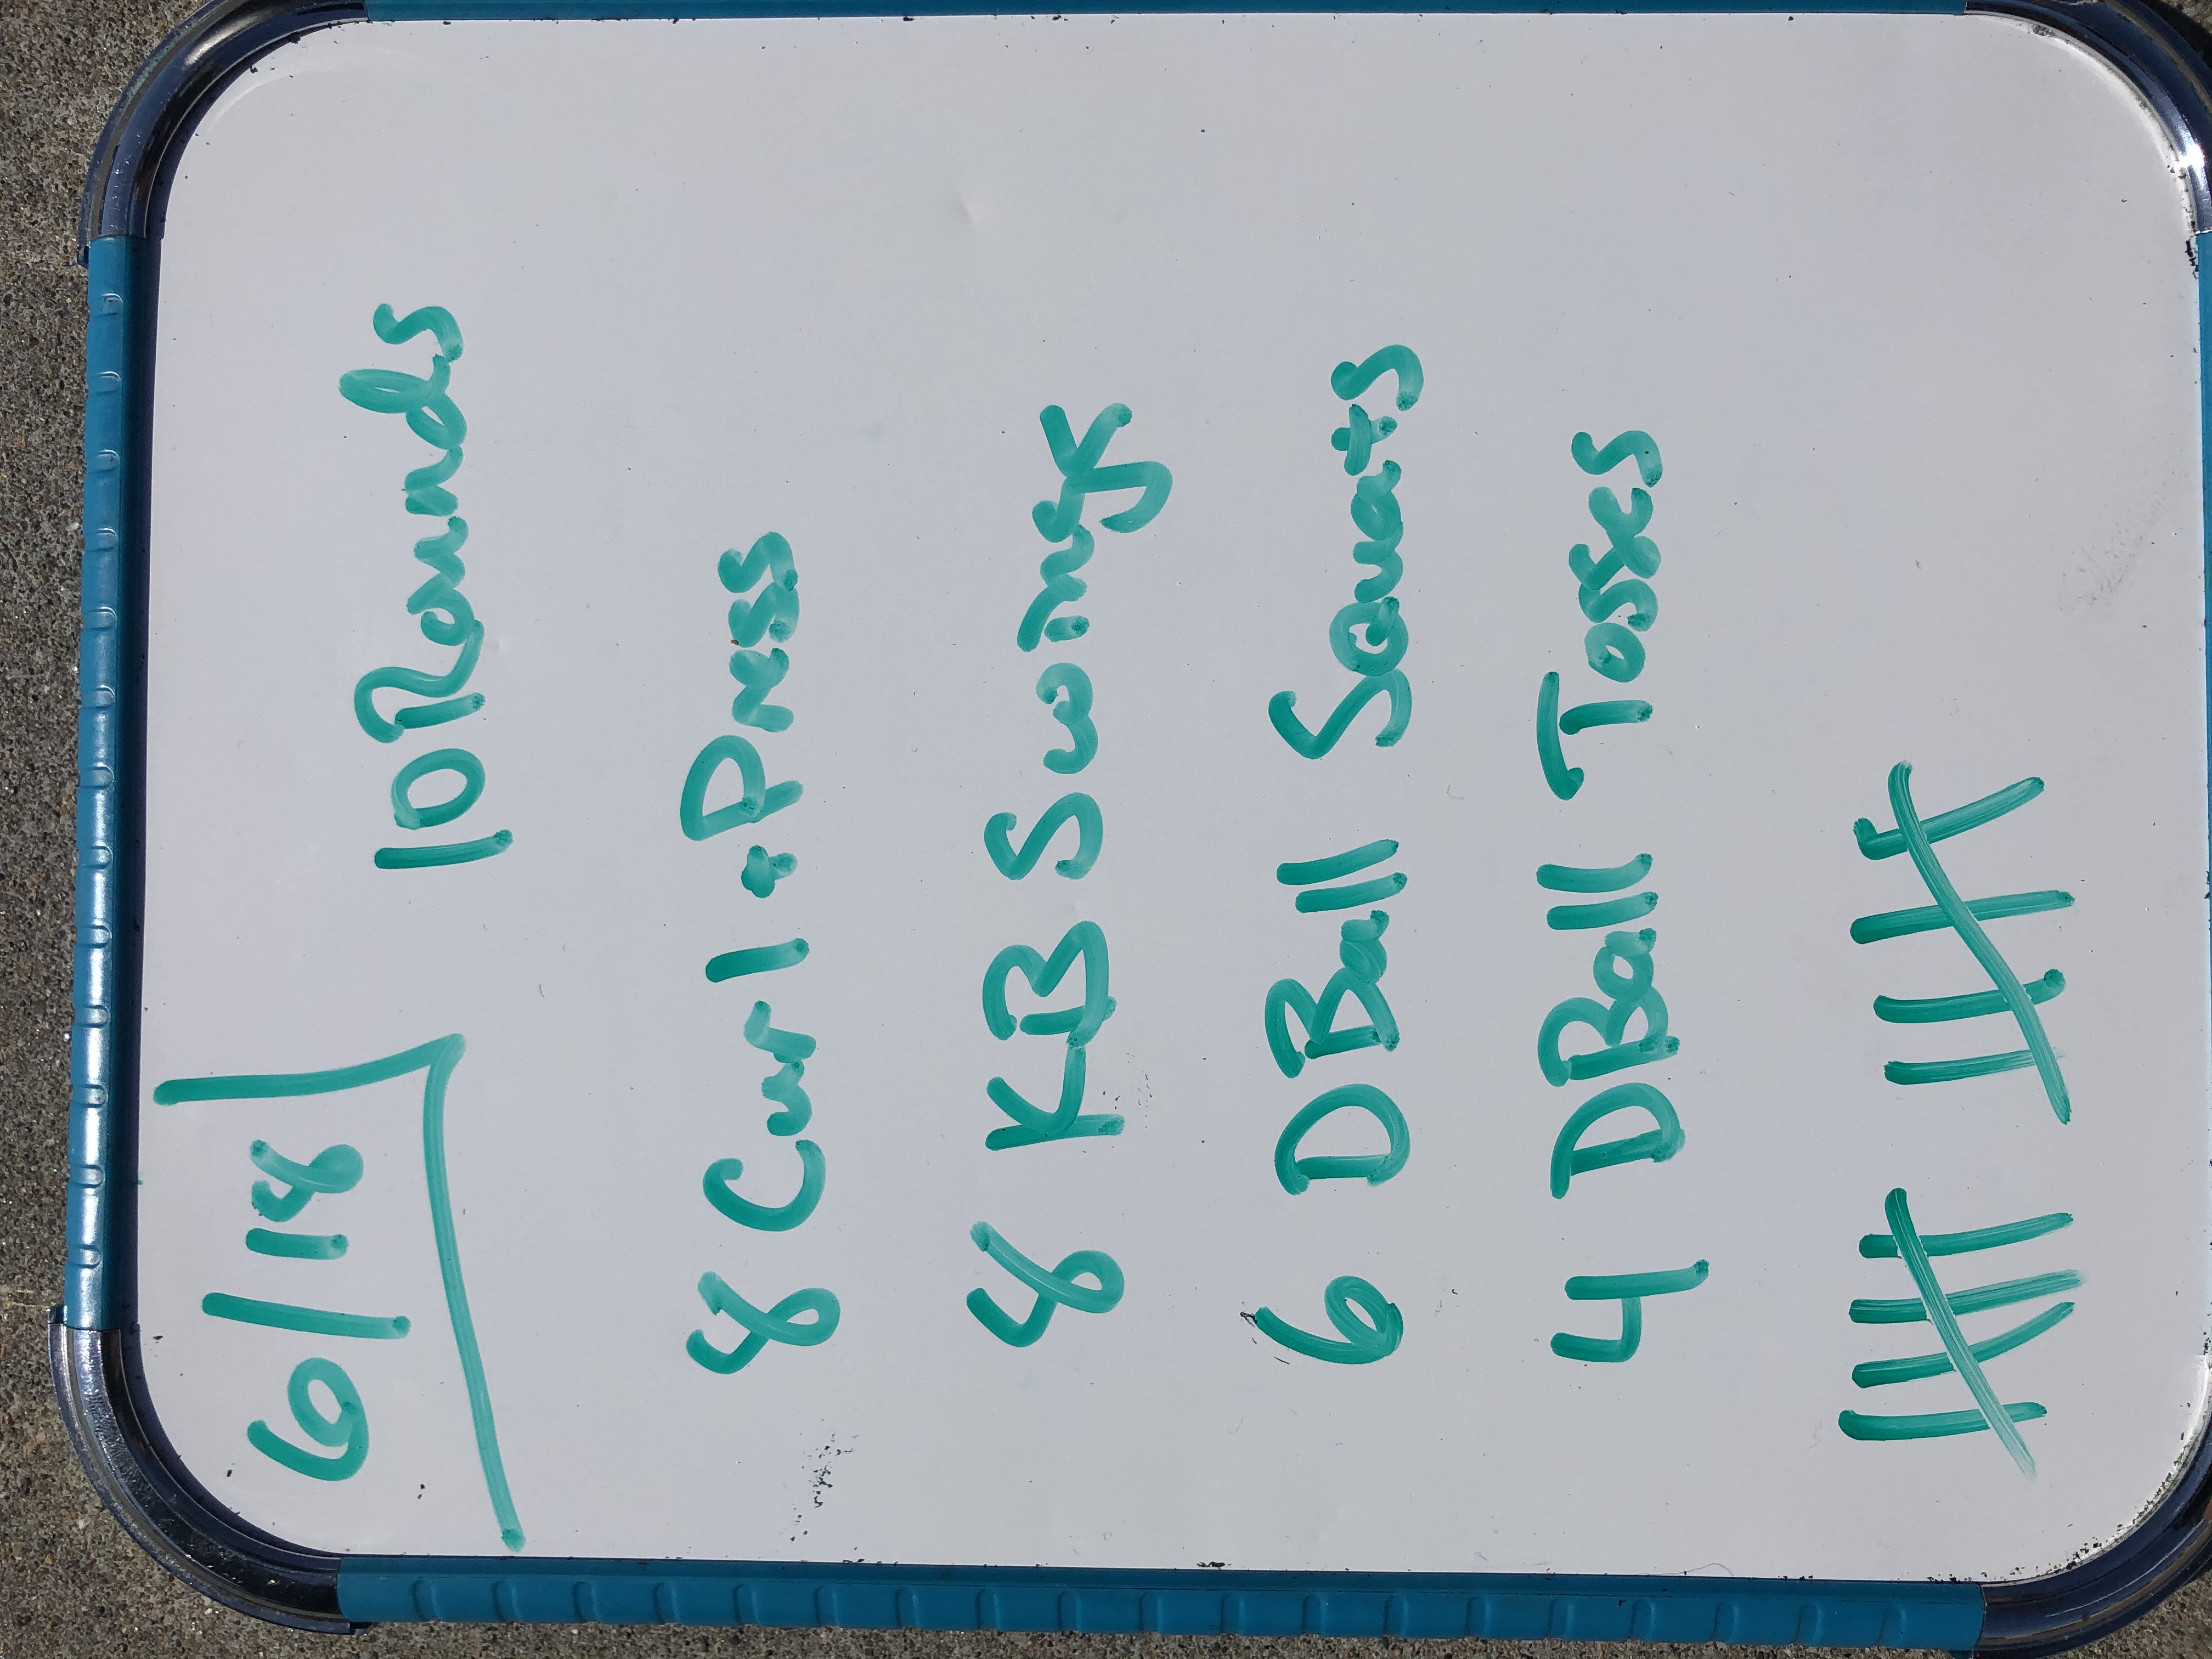 6/18
10 Rounds
8 Curl + Press
8 KB Swings
6 DBall Squats
4 DBall Tosses